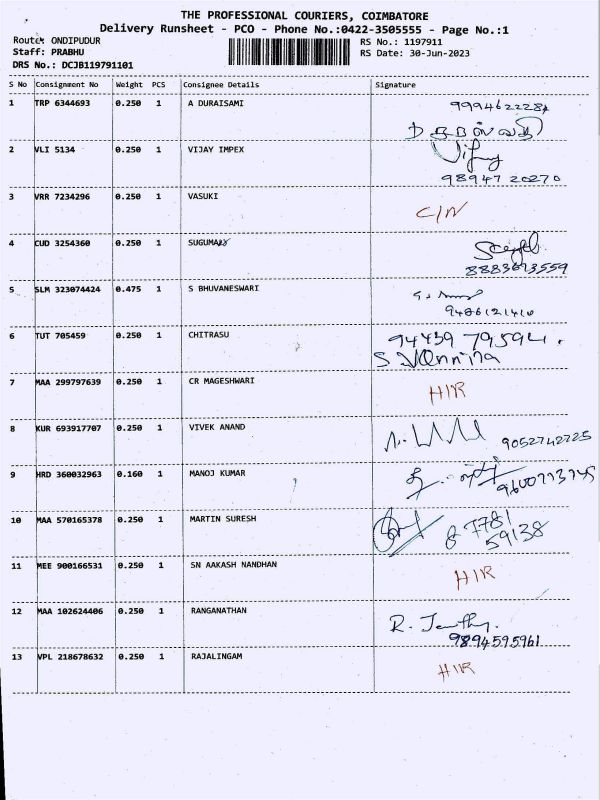 THE PROFESSIONAL COURIERS, COIMBATORE
Delivery Runsheet - PCO - Phone No.:0422-3505555 - Page No.:1
Route: ONDIPUDUR
RS No.: 1197911
Staff: PRABHU
RS Date: 30-Jun-2023
DRS No.: DCJB119791101
S No Consignment No Weight PCS Consignee Details Signature
1 TRP 6344693 0.250 1 A DURAISAMI
2 VLI 5134 0.250 1 VIJAY IMPEX
98947 20270
3 VRR 7234296 0.250 1 VASUKI C/N
4 CUD 3254360 0.250 1
5 SLM 323074424 0.475 1 S BHUVANESWARI
9486121410
6 TUT 705459 0.250 1 CHITRASU 94439 79594.
7 MAA 299797639 0.250 1 CR MAGESHWARI HIR
8 KUR 693917707 0.250 1 VIVEK ANAND 9052742725
9 HRD 360032963 0.160 1 MANOJ KUMAR
10 MAA 570165378 0.250 1 MARTIN SURESH 87781
59138
11 MEE 900166531 0.250 1 SN AAKASH NANDHAN HIR
12 MAA 102624406 0.250 1 RANGANATHAN
9894595961
13 VPL 218678632 0.250 1 RAJALINGAM HIR